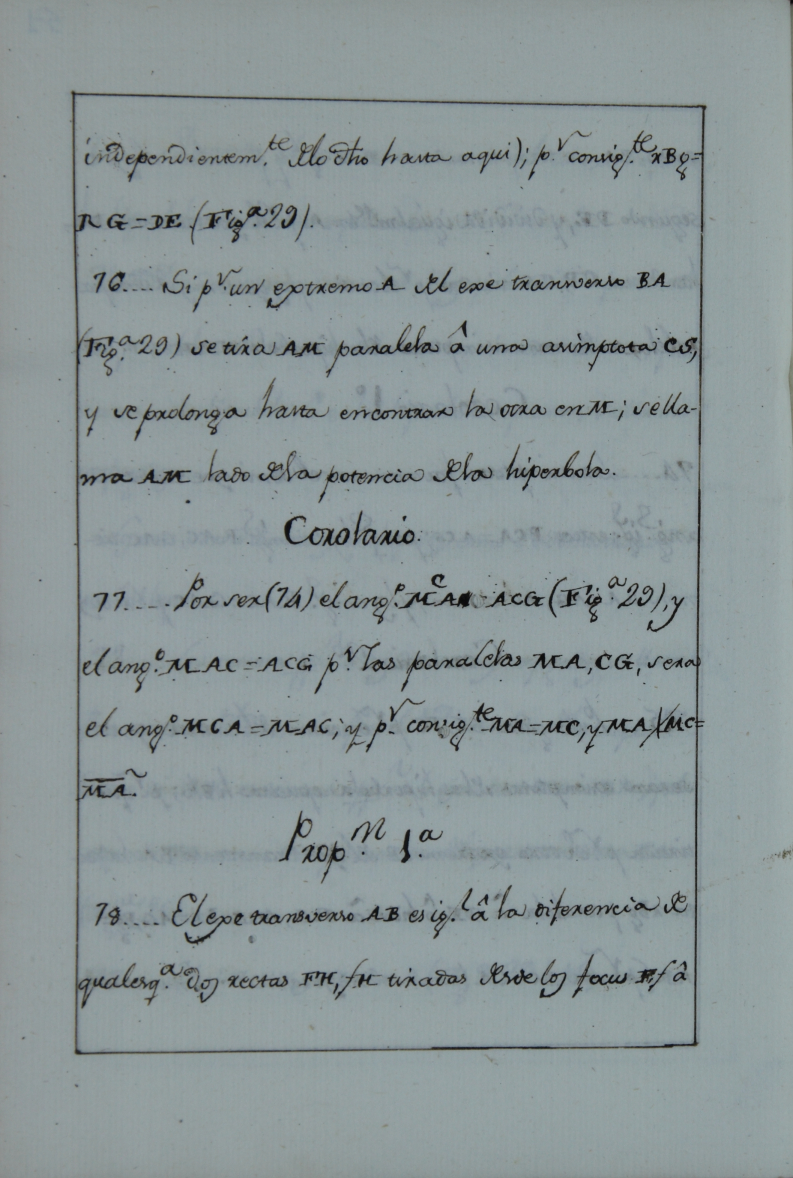 independientem.te de lo dho hasta aqui); p.r consig.te rBg=
RG=DE (Fig.a 29).
76.... Si p.r un extremo A del exe transverso BA
(Fig.a 29) se tira AM paralela â una asimptota CS,
y se prolonga hasta encontrar la otra en M; se lla-
ma AM lado de la potencia de la hiperbola.
Corolario.
77.... Por ser (74) el ang.o MCA = ACG (Fig.a 29), y
el ang.o MAC = ACG p.r las paralelas MA, CG, sera
el ang.o MCA = MAC; y p.r consig.te MA = MC, y MA X MC =
MA.
Prop.n 1.a
78.... El exe transverso AB es ig.l â la diferencia de
qualesq.a dos rectas FH, fH tiradas desde los focus F, f â